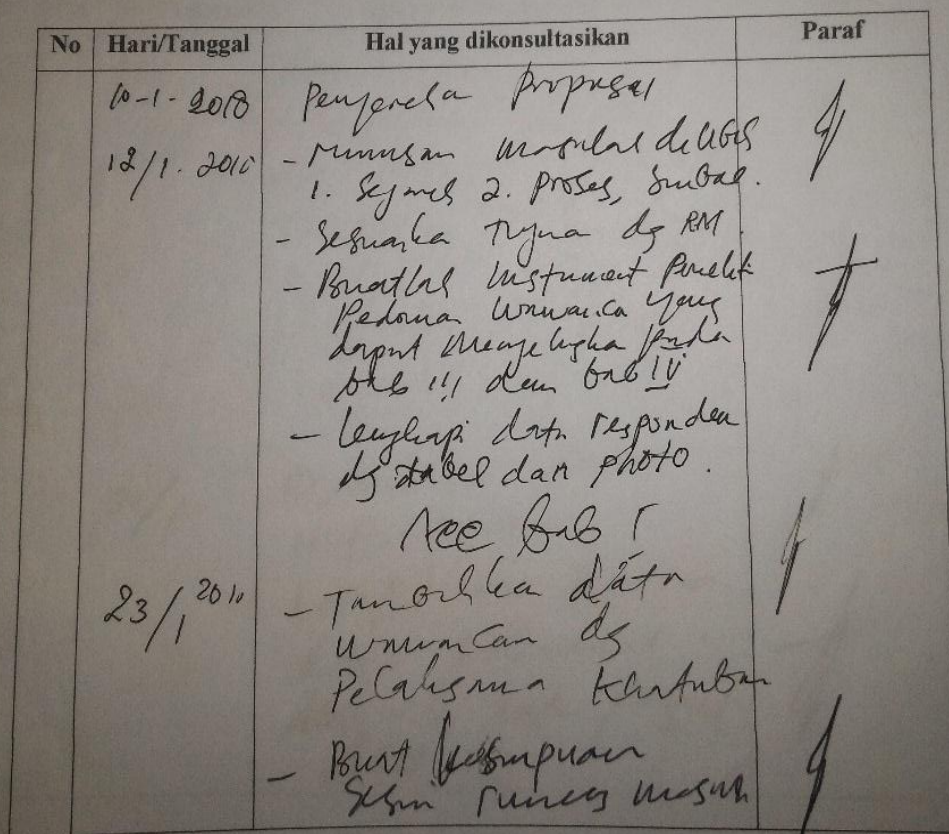 No Hari/Tanggal Hal yang dikonsultasikan Paraf
10-1-2018 Penyerahan Proposal
12/1. 2018 - rumusan masalah
1. Sejarah 2. Proses, Simbol.
- Sesuaika Tujua dg RM
- Buatlah Instrument Peneliti
Pedoman wawanca yang
dapat menjelaska pada
bab III dan bab IV
- lengkapi data responden
dg tabel dan photo.
Acc bab I
23/1 2018 - Tambahka data
wawancan dg
Pelaksana Khatuban
- Buat kesimpulan
Sesuai rumus masalah